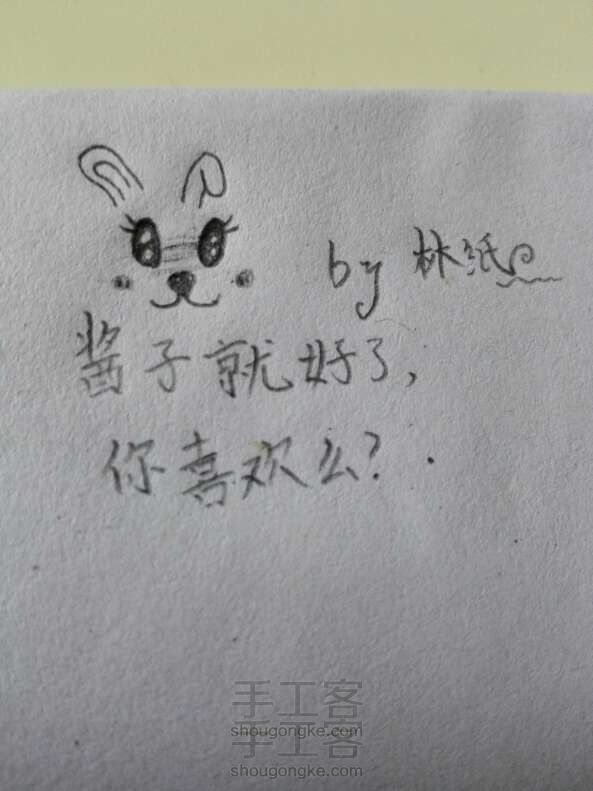 by 林纸
酱子就好了,
你喜欢么?.
手工客
shougongke.com
手工客
shougongke.com